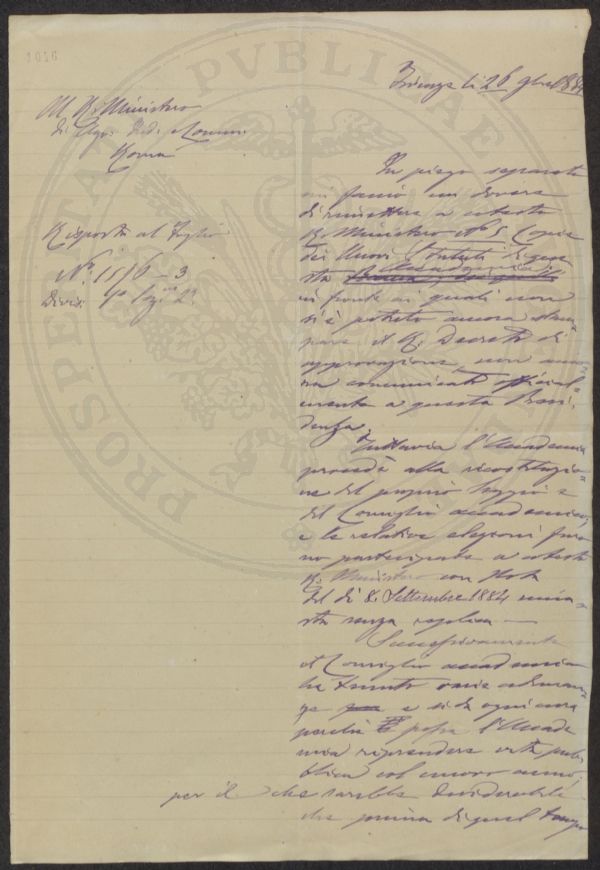 1016
Firenze li 26 9bre 1884
Al R. Ministero
di Agr. Ind. e Comm.
Roma
Risposta al Foglio
N.º 1516-3
Divis.
In piego separato
mi faccio un dovere
di rimettere a cotesto
R. Ministero N.º 5 Copie
dei Nuovi Statuti di que
sta Accademia
in fronte ai quali non
si è potuto ancora stam
pare il R. Decreto di
approvazione, non anco
ra comunicato official=
mente a questa Presi
denza.
Tuttavia l'Accademia
procedè alla ricostituzio=
ne del proprio Seggio e
del Consiglio accademico,
e le relative elezioni furo
no partecipate a cotesto
R. Ministero con Nota
del dì 8. Settembre 1884 rima
sta senza replica
Successivamente
il Consiglio accademico
ha tenuto varie adunan=
ze e si dà ogni cura
perchè possa l'Accade
mia riprendere vita pub
blica col nuovo anno,
per il che sarebbe desiderabile
che prima di quel tempo
PROSPERITAS PVBLICAE